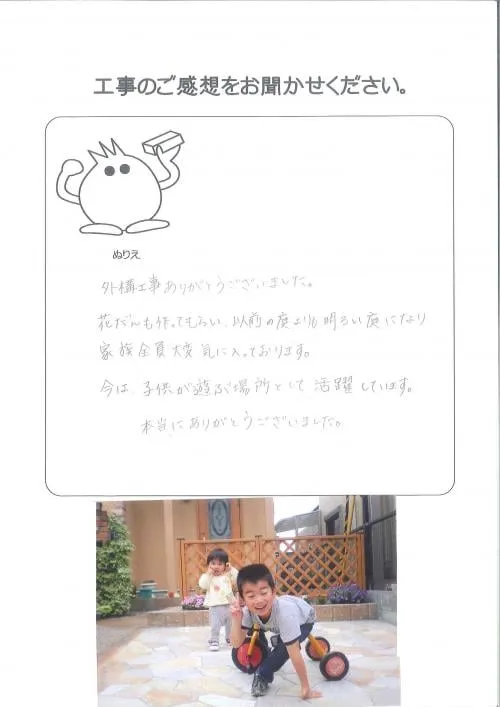 工事のご感想をお聞かせください。
ぬりえ
外構工事ありがとうございました。
花だんも作ってもらい、以前の庭よりも明るい庭になり
家族全員大変気に入っております。
今は、子供が遊ぶ場所として活躍しています。
本当にありがとうございました。